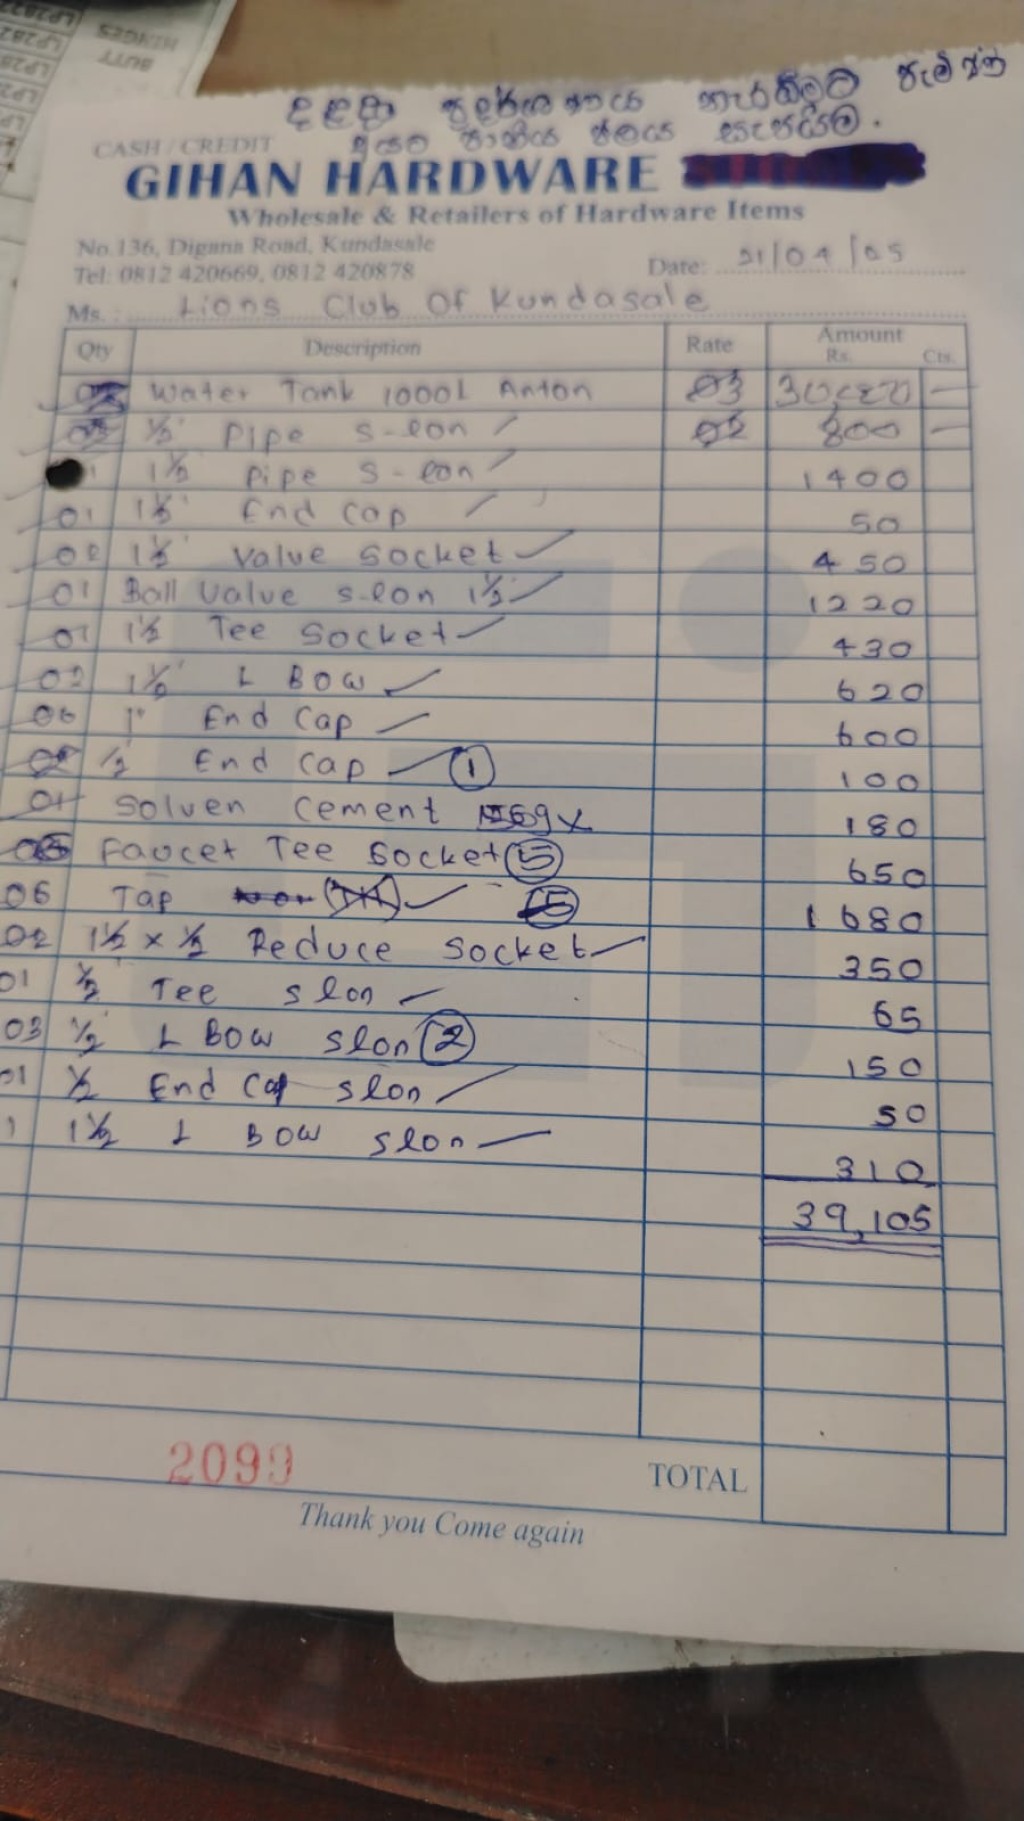 දළදා ප්‍රදර්ශනය නැරඹීමට පැමිණි
අයට පානීය ජලය සැපයීම.
CASH / CREDIT
GIHAN HARDWARE
Wholesale & Retailers of Hardware Items
No.136, Digana Road, Kundasale
Tel: 0812 420669, 0812 420878
Date: 21/04/25
Ms. : Lions Club Of Kundasale
Qty Description Rate Amount
Rs. Cts.
Water Tank 1000L Anton 03 —
½" Pipe S-lon 02 800 —
1½ Pipe S-lon 1400
01 1½" End Cap 50
02 1½" Valve Socket 450
01 Ball Valve S-lon 1½" 1220
01 1½ Tee Socket 430
02 1½" L Bow 620
06 1" End Cap 600
½ End Cap 1 100
01 Solven Cement 180
Faucet Tee Socket 5 650
06 Tap 5 1680
02 1½ x ½ Reduce Socket 350
01 ½" Tee Slon 65
03 ½" L Bow Slon 2 150
01 ½ End Cap Slon 50
1 1½ L Bow Slon 310
39,105
2099
TOTAL
Thank you Come again